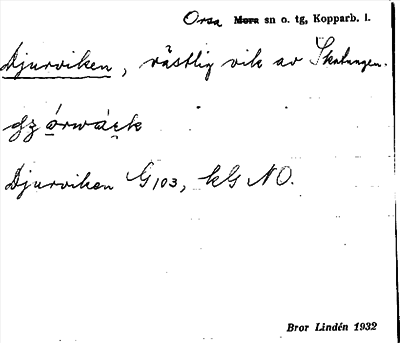 Orsa Mora sn o. tg, Kopparb. l.
Djurviken, västlig vik av Skatungen.
Djurviken G103, kG NO.
Bror Lindén 1932